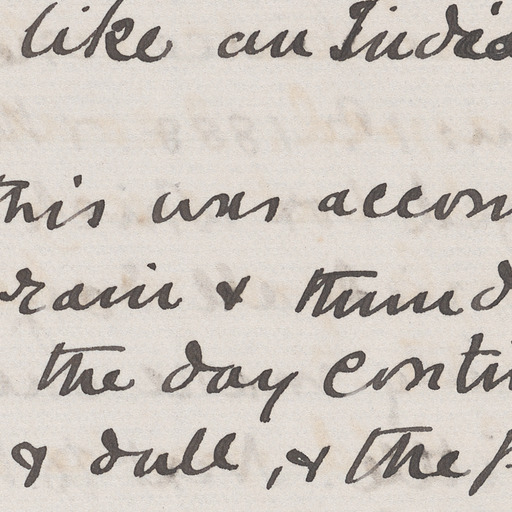 like an India
this was accom
rain & thund
the day conti
& dull, & the